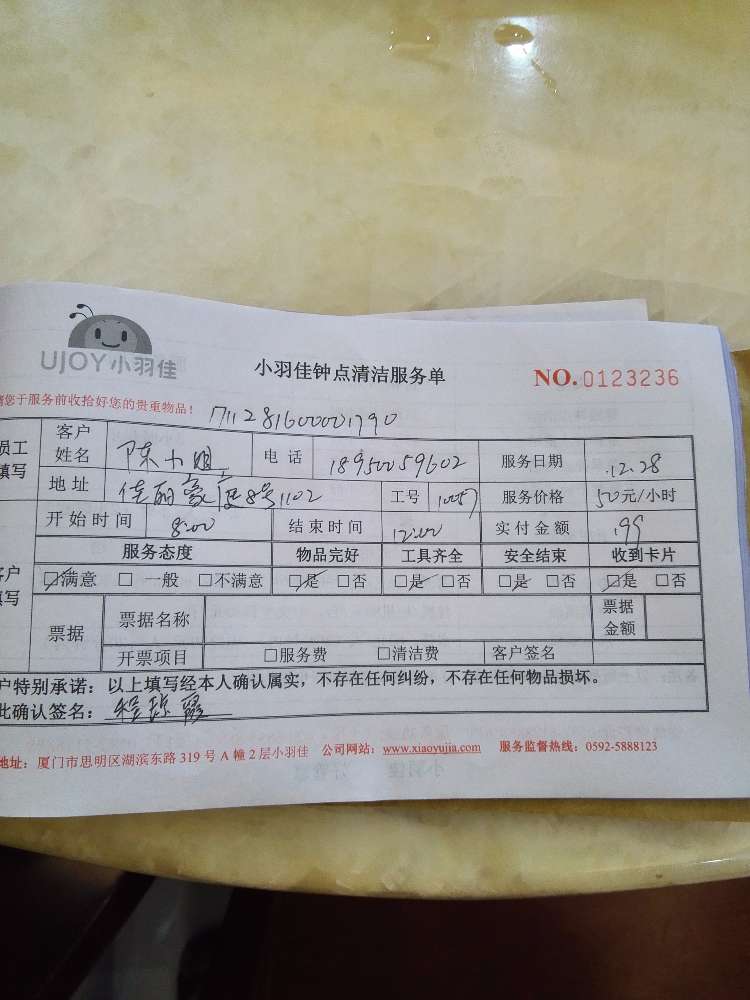 UJOY小羽佳
小羽佳钟点清洁服务单
NO.0123236
请您于服务前收拾好您的贵重物品！
1711281600001790
员工填写
客户姓名 陈小姐 电话 18950059602 服务日期 12.28
地址 佳丽豪庭8号1102 工号 10057 服务价格 50元/小时
开始时间 8:00 结束时间 12:00 实付金额 199
客户填写
服务态度 物品完好 工具齐全 安全结束 收到卡片
☑满意 □一般 □不满意 ☑是 □否 ☑是 □否 ☑是 □否 ☑是 □否
票据 票据名称 票据金额
开票项目 □服务费 □清洁费 客户签名
户特别承诺：以上填写经本人确认属实，不存在任何纠纷，不存在任何物品损坏。
此确认签名：程琼霞
地址：厦门市思明区湖滨东路319号A幢2层小羽佳 公司网站：www.xiaoyujia.com 服务监督热线：0592-5888123